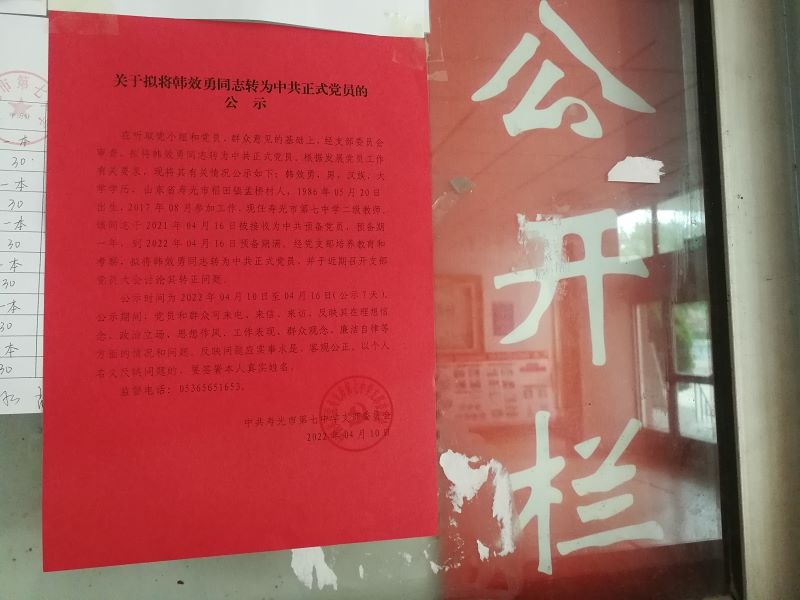 关于拟将韩效勇同志转为中共正式党员的
公 示
在听取党小组和党员、群众意见的基础上，经支部委员会
审查，拟将韩效勇同志转为中共正式党员。根据发展党员工作
有关要求，现将其有关情况公示如下：韩效勇，男，汉族，大
学学历，山东省寿光市稻田镇孟桥村人，1986年05月20日
出生，2017年08月参加工作，现任寿光市第七中学二级教师。
该同志于2021年04月16日被接收为中共预备党员，预备期
一年，到2022年04月16日预备期满。经党支部培养教育和
考察，拟将韩效勇同志转为中共正式党员，并于近期召开支部
党员大会讨论其转正问题。
公示时间为2022年04月10日至04月16日(公示7天)。
公示期间，党员和群众可来电、来信、来访，反映其在理想信
念、政治立场、思想作风、工作表现、群众观念、廉洁自律等
方面的情况和问题。反映问题应实事求是，客观公正。以个人
名义反映问题的，要签署本人真实姓名。
监督电话：05365651653。
中共寿光市第七中学支部委员会
2022年04月10日
公开栏
一本
30
一本
30
一本
30
一本
30
一本
30
本
30